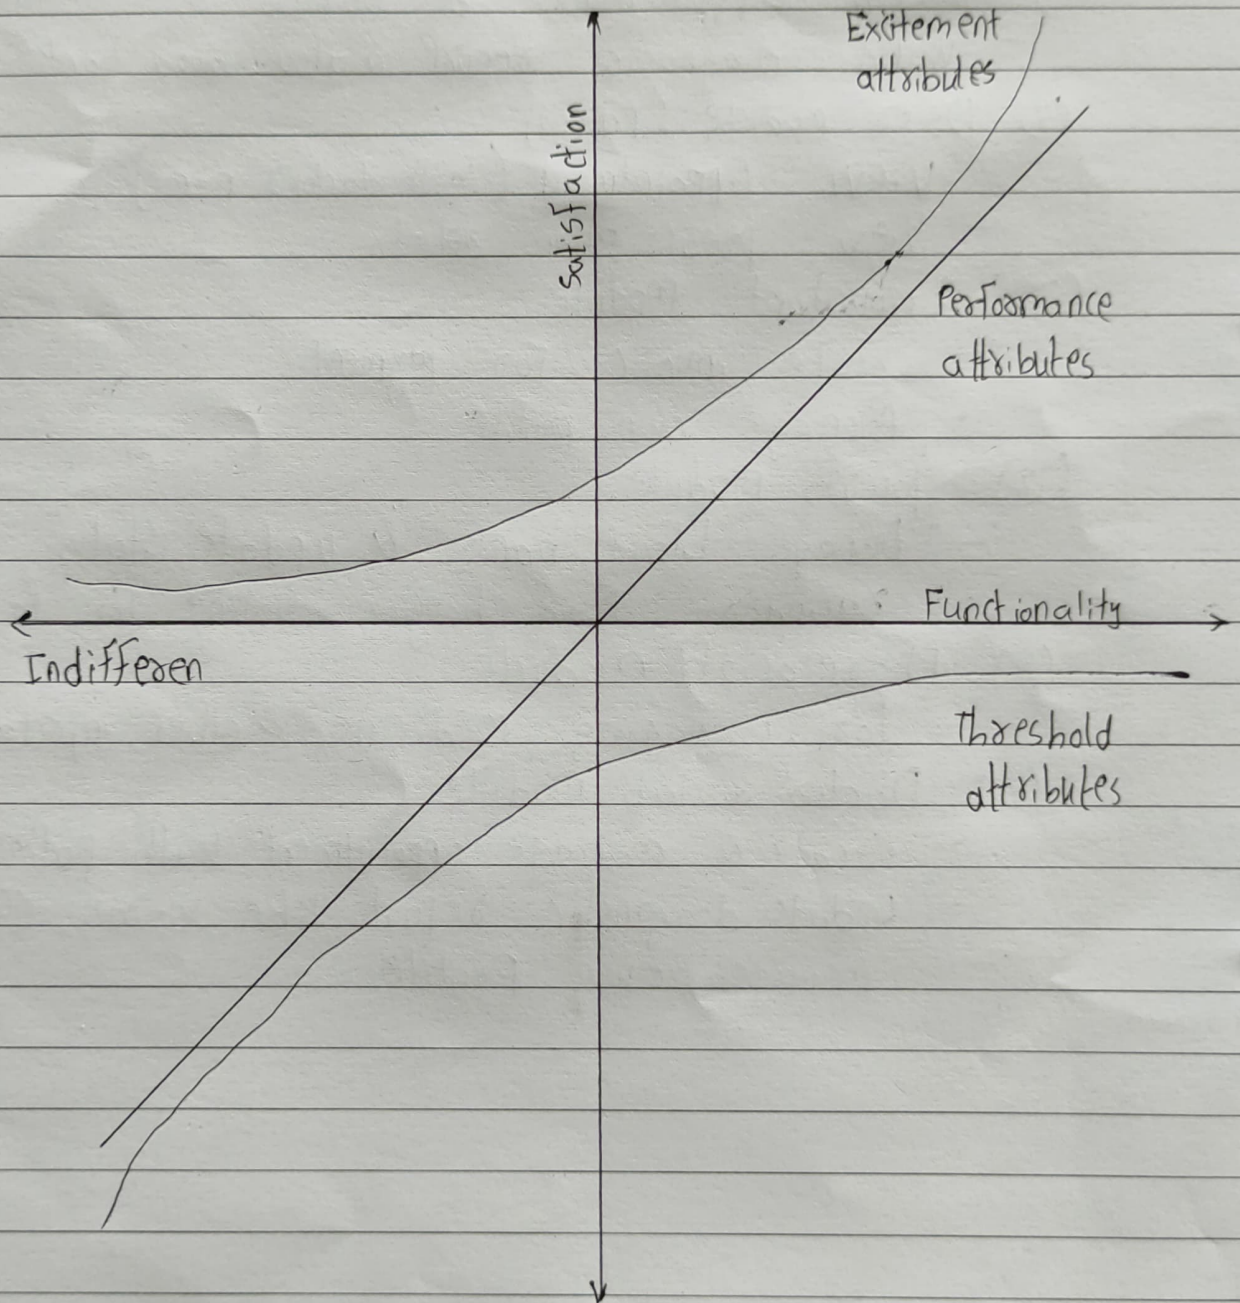 Excitement
attributes
Satisfaction
Performance
attributes
Functionality
Indifferen
Threshold
attributes